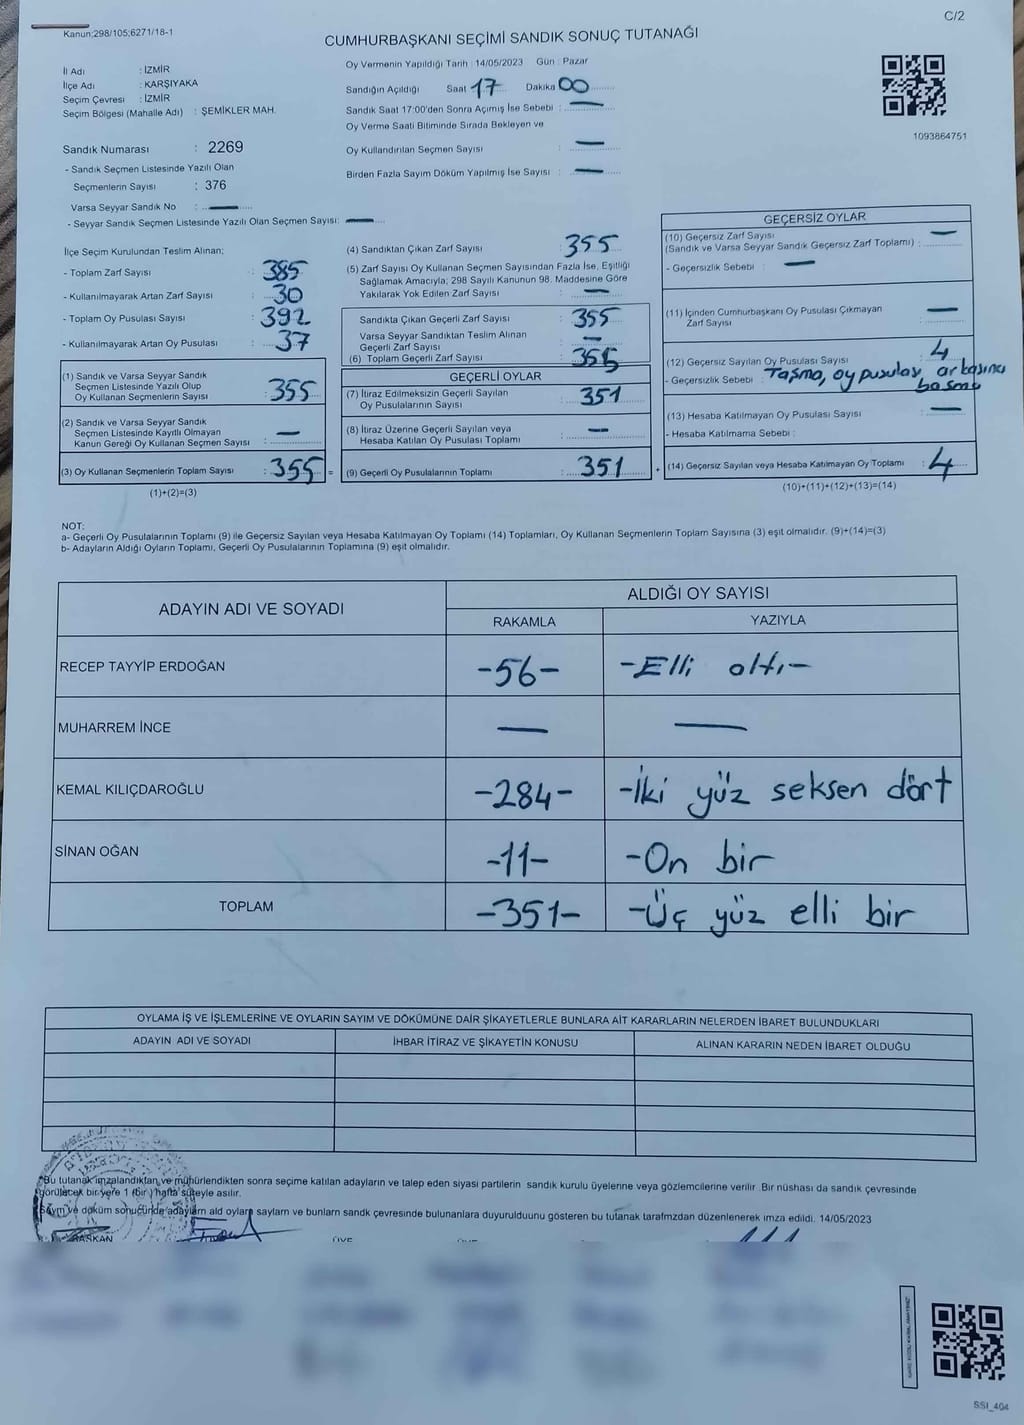 C/2
Kanun;298/105;6271/18-1
CUMHURBAŞKANI SEÇİMİ SANDIK SONUÇ TUTANAĞI
İl Adı : İZMİR
İlçe Adı : KARŞIYAKA
Seçim Çevresi : İZMİR
Seçim Bölgesi (Mahalle Adı) : ŞEMİKLER MAH.
Sandık Numarası : 2269
- Sandık Seçmen Listesinde Yazılı Olan
Seçmenlerin Sayısı : 376
Varsa Seyyar Sandık No : —
- Seyyar Sandık Seçmen Listesinde Yazılı Olan Seçmen Sayısı: —
Oy Vermenin Yapıldığı Tarih : 14/05/2023 Gün : Pazar
Sandığın Açıldığı Saat 17 Dakika 00
Sandık Saat 17:00'den Sonra Açımış İse Sebebi : —
Oy Verme Saati Bitiminde Sırada Bekleyen ve
Oy Kullandırılan Seçmen Sayısı : —
Birden Fazla Sayım Döküm Yapılmış İse Sayısı : —
1093864751
İlçe Seçim Kurulundan Teslim Alınan;
- Toplam Zarf Sayısı : 385
- Kullanılmayarak Artan Zarf Sayısı : 30
- Toplam Oy Pusulası Sayısı : 392
- Kullanılmayarak Artan Oy Pusulası : 37
(1) Sandık ve Varsa Seyyar Sandık
Seçmen Listesinde Yazılı Olup
Oy Kullanan Seçmenlerin Sayısı : 355
(2) Sandık ve Varsa Seyyar Sandık
Seçmen Listesinde Kayıtlı Olmayan
Kanun Gereği Oy Kullanan Seçmen Sayısı : —
(3) Oy Kullanan Seçmenlerin Toplam Sayısı : 355 =
(1)+(2)=(3)
(4) Sandıktan Çıkan Zarf Sayısı : 355
(5) Zarf Sayısı Oy Kullanan Seçmen Sayısından Fazla İse, Eşitliği
Sağlamak Amacıyla; 298 Sayılı Kanunun 98. Maddesine Göre
Yakılarak Yok Edilen Zarf Sayısı : —
Sandıkta Çıkan Geçerli Zarf Sayısı : 355
Varsa Seyyar Sandıktan Teslim Alınan
Geçerli Zarf Sayısı : —
(6) Toplam Geçerli Zarf Sayısı : 355
GEÇERLİ OYLAR
(7) İtiraz Edilmeksizin Geçerli Sayılan
Oy Pusulalarının Sayısı : 351
(8) İtiraz Üzerine Geçerli Sayılan veya
Hesaba Katılan Oy Pusulası Toplamı : —
(9) Geçerli Oy Pusulalarının Toplamı : 351 +
GEÇERSİZ OYLAR
(10) Geçersiz Zarf Sayısı
(Sandık ve Varsa Seyyar Sandık Geçersiz Zarf Toplamı) : —
- Geçersizlik Sebebi : —
(11) İçinden Cumhurbaşkanı Oy Pusulası Çıkmayan
Zarf Sayısı : —
(12) Geçersiz Sayılan Oy Pusulası Sayısı : 4
- Geçersizlik Sebebi : Taşma, oy pusulası arkasına
basma
(13) Hesaba Katılmayan Oy Pusulası Sayısı : —
- Hesaba Katılmama Sebebi :
(14) Geçersiz Sayılan veya Hesaba Katılmayan Oy Toplamı : 4
(10)+(11)+(12)+(13)=(14)
NOT:
a- Geçerli Oy Pusulalarının Toplamı (9) ile Geçersiz Sayılan veya Hesaba Katılmayan Oy Toplamı (14) Toplamları, Oy Kullanan Seçmenlerin Toplam Sayısına (3) eşit olmalıdır. (9)+(14)=(3)
b- Adayların Aldığı Oyların Toplamı, Geçerli Oy Pusulalarının Toplamına (9) eşit olmalıdır.
ADAYIN ADI VE SOYADI
ALDIĞI OY SAYISI
RAKAMLA YAZIYLA
RECEP TAYYİP ERDOĞAN -56- -Elli altı-
MUHARREM İNCE — —
KEMAL KILIÇDAROĞLU -284- -İki yüz seksen dört
SİNAN OĞAN -11- -On bir
TOPLAM -351- -Üç yüz elli bir
OYLAMA İŞ VE İŞLEMLERİNE VE OYLARIN SAYIM VE DÖKÜMÜNE DAİR ŞİKAYETLERLE BUNLARA AİT KARARLARIN NELERDEN İBARET BULUNDUKLARI
ADAYIN ADI VE SOYADI İHBAR İTİRAZ VE ŞİKAYETİN KONUSU ALINAN KARARIN NEDEN İBARET OLDUĞU
Bu tutanak imzalandıktan ve mühürlendikten sonra seçime katılan adayların ve talep eden siyasi partilerin sandık kurulu üyelerine veya gözlemcilerine verilir. Bir nüshası da sandık çevresinde
görülecek bir yere 1 (bir) hafta süreyle asılır.
Sayım ve döküm sonucunda adayların ald oyların saylarn ve bunlarn sandk çevresinde bulunanlara duyurulduunu gösteren bu tutanak tarafmzdan düzenlenerek imza edildi. 14/05/2023
BAŞKAN ÜYE ÜYE
SSI_404